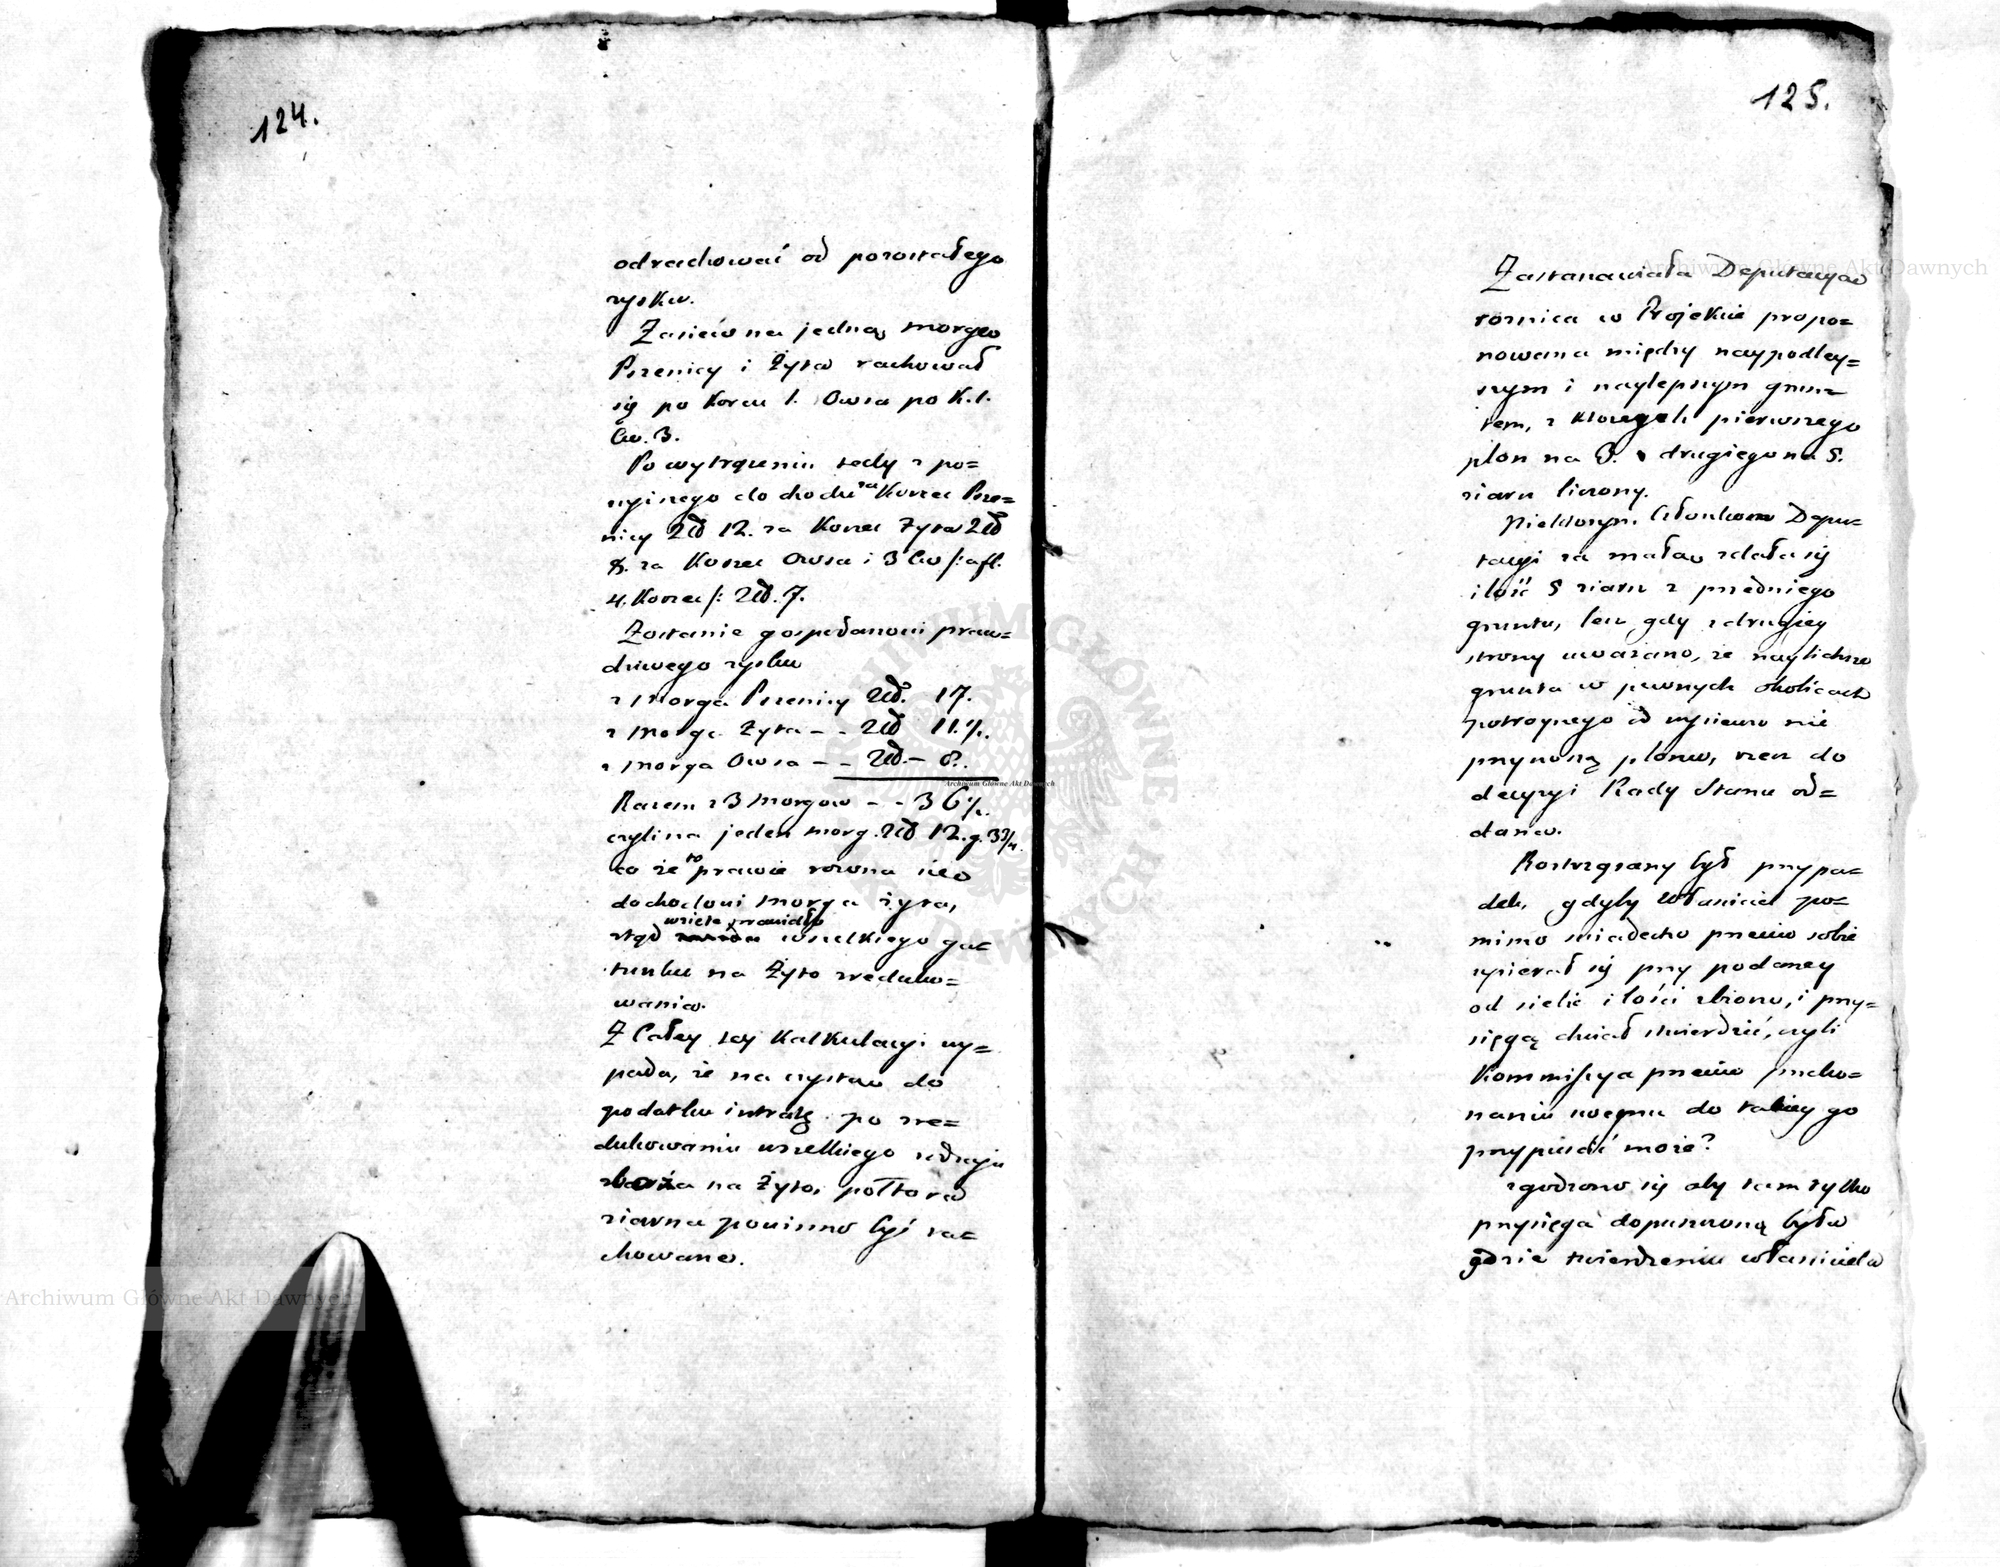 124.
odrachować od pozostałego
zysku.
Zasiew na jedną morgę
Pszenicy i Żyta rachował
się po Korcu 1. Owsa po K. 1.
Ćw. 3.
Po wytrąceniu tedy z po=
wyższego dochodu za Korzec Psze=
nicy Złł 12. za Korzec Żyta Złł
8. za Korzec Owsa i 3 Ćw /: a fl.
4. Korzec /: Złł. 7.
Zostanie gospodarzowi praw=
dziwego zysku
z Morga Pszenicy Złł. 17.
z Morga Żyta - - Złł 11.½.
z Morga Owsa - - Złł. - 8.
Razem z 3 Morgow - - 36½.
czyli na jeden morg. Złł 12. g.
co że to prawie rowna się
dochodowi Morga żyta,
wzięte prawidło
stąd wszelkiego ga=
tunku na Żyto zreduko=
wania.
Z Całey tey Kalkulacyi wy=
pada, że na czysta do
podatku intratę po zre=
dukowaniu wszelkiego rodzaju
zboża na Żyto, połtora
ziarna powinno być ra=
chowane.
125.
Zastanawiała Deputacyą
roznica w Projekcie propo=
nowana między naypodley=
szym i naylepszym grun=
tem, z ktorych pierwszego
plon na 3. drugiego na 5.
ziarn liczony.
Niektorym Członkom Depu=
tacyi za mała zdała się
ilość 5 ziarn z przedniego
gruntu, lecz gdy z drugiey
strony uważano, że naylichsze
grunta w pewnych okolicach
potroynego od wysiewu nie
przynoszą plonu, rzecz do
decyzyi Rady Stanu od=
dana.
Roztrząsany był przypa=
dek, gdyby Właściciel po=
mimo świadectw przeciw sobie
upierał się przy podaney
od siebie ilości zbioru, i przy=
sięgą chciał stwierdzić, czyli
Kommissya przeciw przeko=
naniu swemu do takiey go
przypuścić może?
zgodzono się aby tam tylko
przysięga dopuszczoną była
gdzie twierdzeniu właściciela
Archiwum Główne Akt Dawnych
Archiwum Główne Akt Dawnych
Archiwum Główne Akt Dawnych
ARCHIWUM GŁÓWNE AKT DAWNYCH